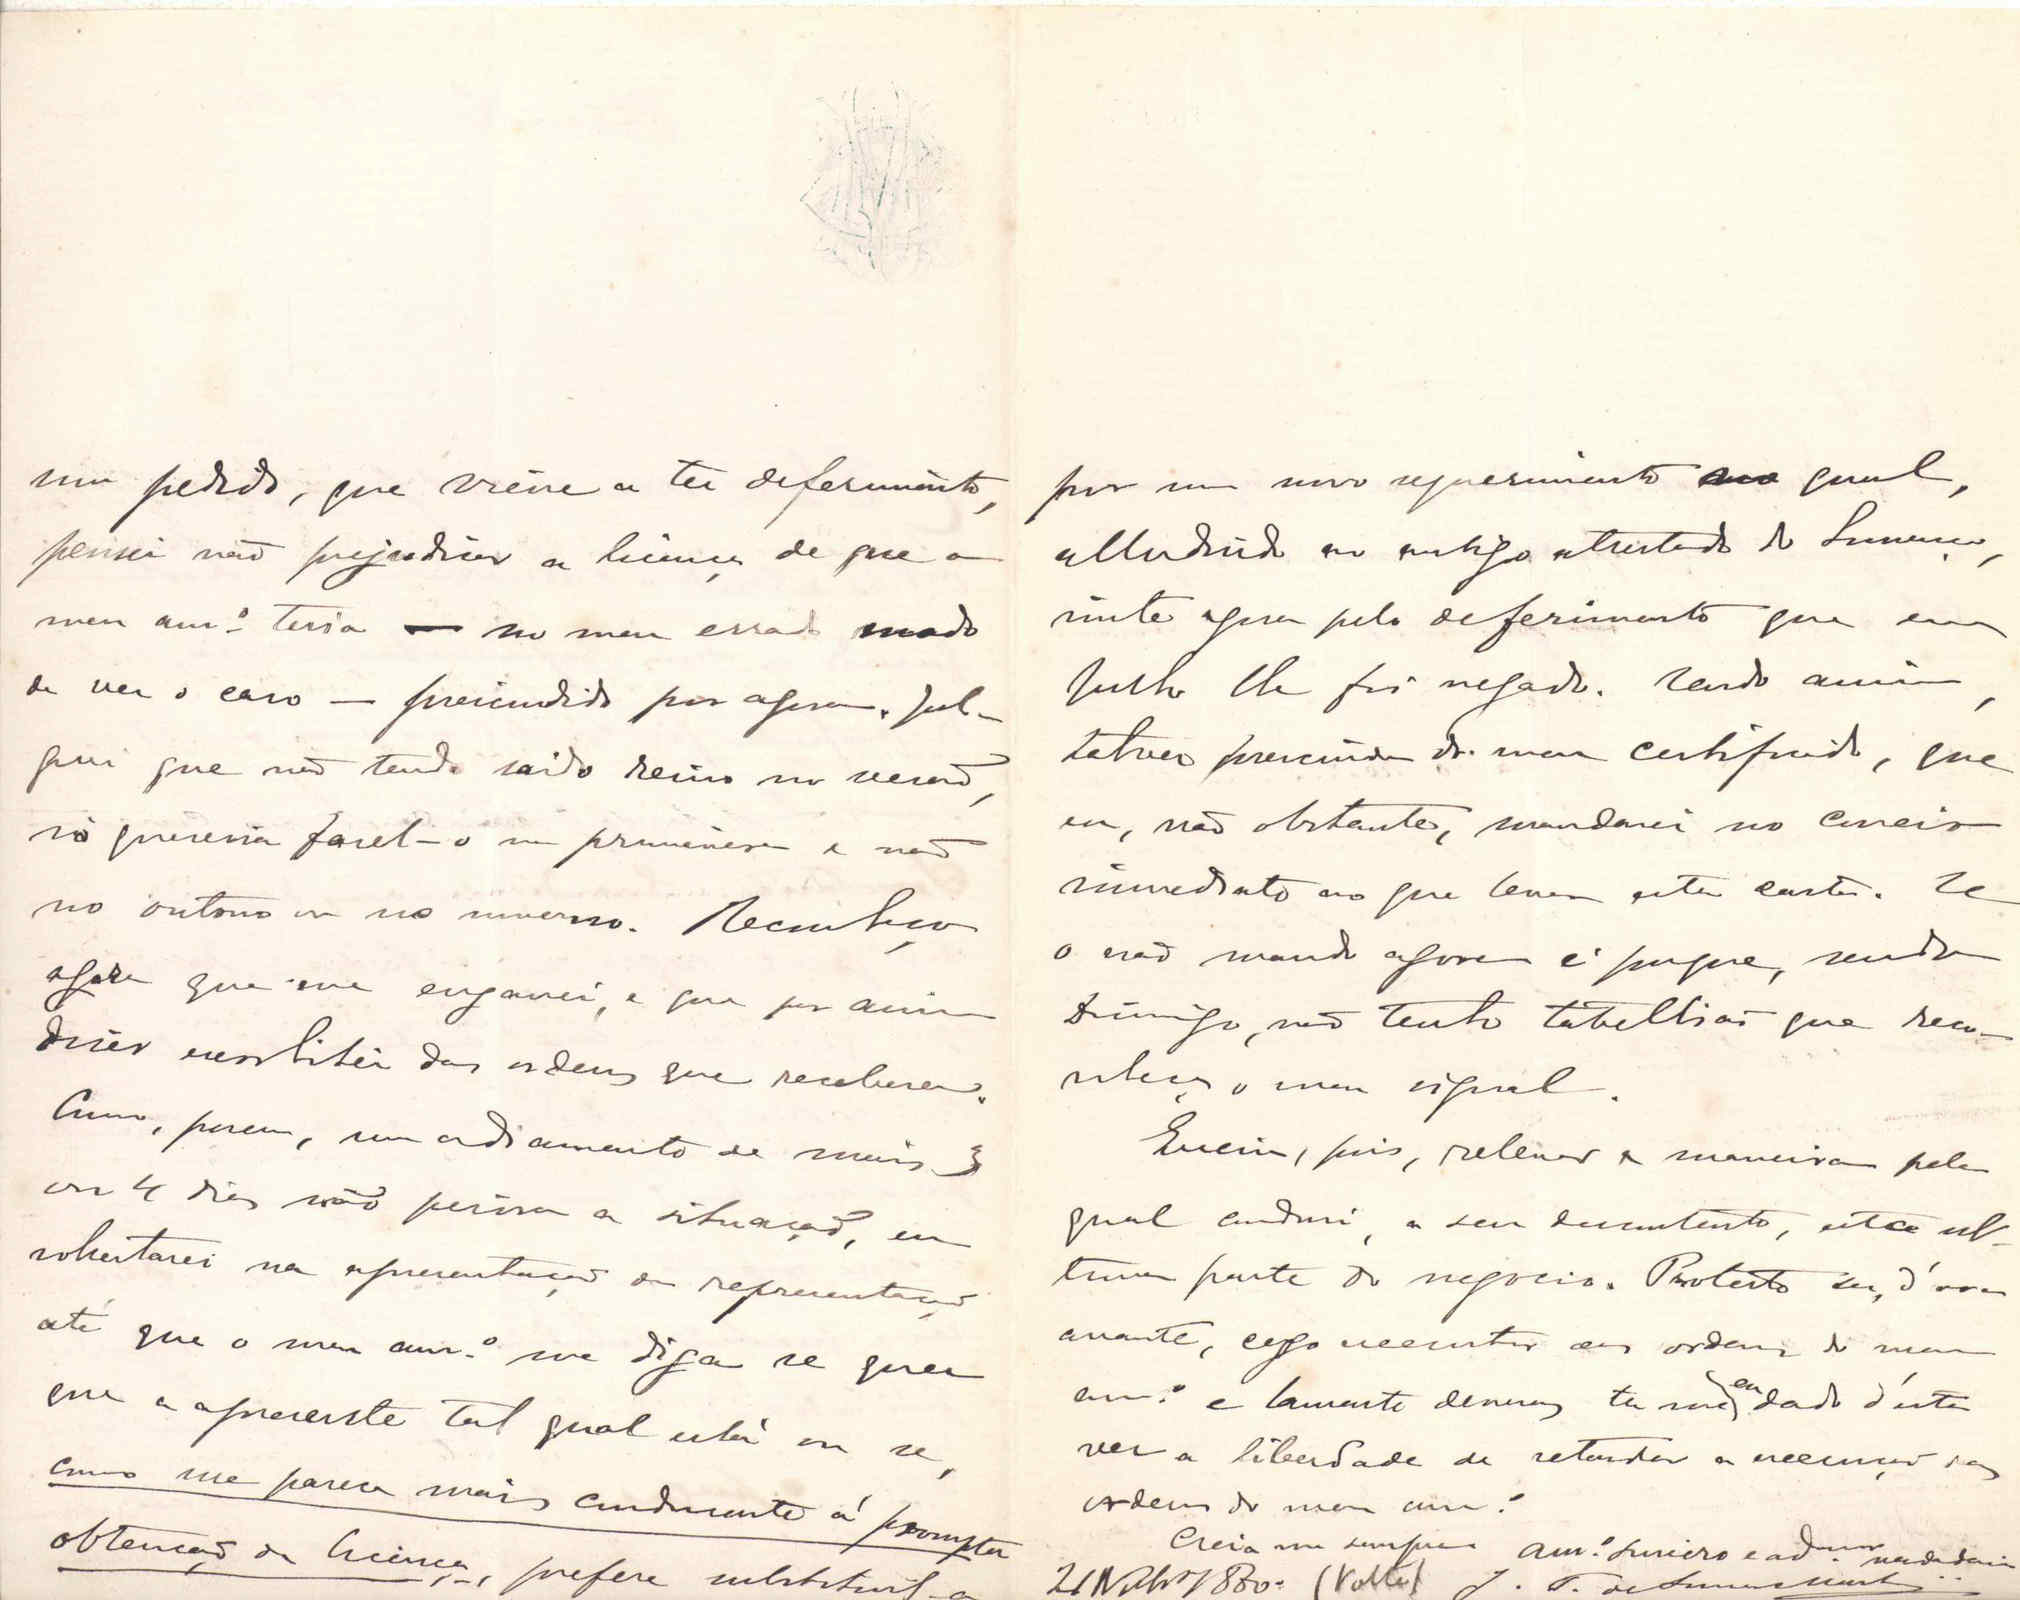 um pedido, que viesse a ter deferimento,
pensei não prejudicar a licença de que o
meu am.º teria — no meu errado modo
de ver o caso — prescindido por agora. Jul-
guei que não tendo saido reino no verão,
só quereria fazel-o na primavera e não
no outono ou no inverno. Reconheço
agora que me enganei, e que por assim
dizer exorbitei das ordens que recebera.
Como, porem, um adiamento de mais 3
ou 4 dias não peiora a situação, eu
sobrestarei na apresentação da representação
até que o meu am.º me diga se quer
que a apresente tal qual está ou se,
como me parece mais conducente á prompta
obtenção da licença, prefere substituil-a
por um novo requerimento no qual,
alludindo ao antigo attestado do Lourenço,
inste agora pelo deferimento que em
Julho lhe foi negado. Sendo assim,
talvez prescinda do meu certificado, que
eu, não obstante, mandarei no correio
immediato ao que levar esta carta. Se
o não mando agora é porque, sendo
Domingo, não tenho tabellião que reco-
nheça o meu signal.
Queira, pois, relevar a maneira pela
qual conduzi, a seu descontento, esta ul-
tima parte do negocio. Protesto ser, d'ora
avante, cego executor das ordens do meu
am.º e lamento deveras ter-me eu dado d'esta
vez a liberdade de retardar a execução das
ordens do meu am.º
Creia-me sempre am.º sincero e ad.mor verdadeiro
21 Nbro 1880. (Volte) J. F. de